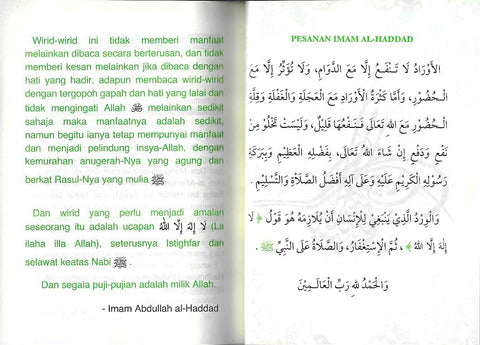 Wirid-wirid ini tidak memberi manfaat
melainkan dibaca secara berterusan, dan tidak
memberi kesan melainkan jika dibaca dengan
hati yang hadir, adapun membaca wirid-wirid
dengan tergopoh gapah dan hati yang lalai dan
tidak mengingati Allah ﷻ melainkan sedikit
sahaja maka manfaatnya adalah sedikit,
namun begitu ianya tetap mempunyai manfaat
dan menjadi pelindung insya-Allah, dengan
kemurahan anugerah-Nya yang agung dan
berkat Rasul-Nya yang mulia ﷺ.
Dan wirid yang perlu menjadi amalan
seseorang itu adalah ucapan لَا إِلٰهَ إِلَّا اللهُ (La
ilaha illa Allah), seterusnya Istighfar dan
selawat keatas Nabi ﷺ.
Dan segala puji-pujian adalah milik Allah.
- Imam Abdullah al-Haddad
PESANAN IMAM AL-HADDAD
الأَوْرَادُ لَا تَنْفَعُ إِلَّا مَعَ الدَّوَامِ، وَلَا تُؤَثِّرُ إِلَّا مَعَ
الْحُضُورِ، وَأَمَّا كَثْرَةُ الْأَوْرَادِ مَعَ الْعَجَلَةِ وَالْغَفْلَةِ وَقِلَّةِ
الْحُضُورِ مَعَ اللهِ تَعَالَى فَنَفْعُهَا قَلِيْلٌ، وَلَيْسَتْ تَخْلُوْ مِنْ
نَفْعٍ وَدَفْعٍ إِنْ شَاءَ اللهُ تَعَالَى، بِفَضْلِهِ الْعَظِيْمِ وَبِبَرَكَةِ
رَسُوْلِهِ الْكَرِيْمِ عَلَيْهِ وَعَلَى آلِهِ أَفْضَلُ الصَّلَاةِ وَالتَّسْلِيْمِ.
وَالْوِرْدُ الَّذِيْ يَنْبَغِيْ لِلْإِنْسَانِ أَنْ يُلَازِمَهُ هُوَ قَوْلُ ﴿ لَا
إِلٰهَ إِلَّا اللهُ ﴾، ثُمَّ الْإِسْتِغْفَارُ، وَالصَّلَاةُ عَلَى النَّبِيِّ ﷺ.
وَالْحَمْدُ لِلهِ رَبِّ الْعَالَمِيْنَ